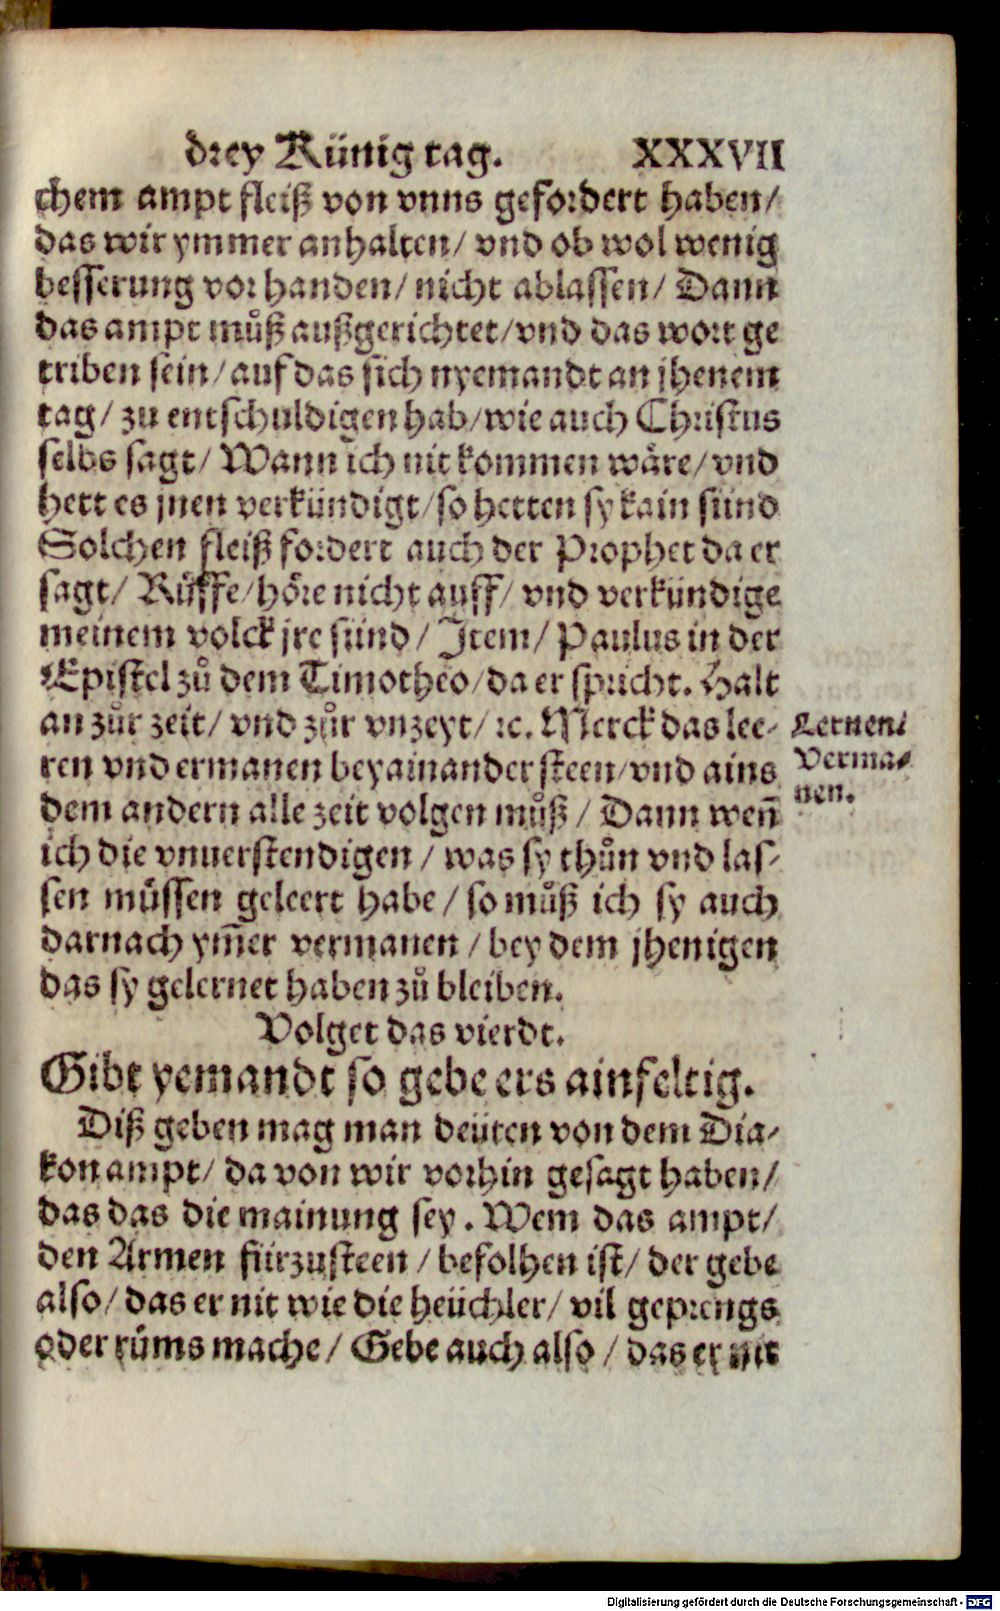 drey Künig tag. XXXVII
chem ampt fleiß von vnns gefordert haben/
das wir ymmer anhalten/ vnd ob wol wenig
besserung vorhanden/ nicht ablassen/ Dann
das ampt můß außgerichtet/ vnd das wort ge
triben sein/ auf das sich nyemandt an jhenem
tag/ zu entschuldigen hab/ wie auch Christus
selbs sagt/ Wann ich nit kommen wäre/ vnd
hett es jnen verkündigt/ so hetten sy kain sünd
Solchen fleiß fordert auch der Prophet da er
sagt/ Růffe/ höre nicht auff/ vnd verkündige
meinem volck jre sünd/ Item/ Paulus in der
Epistel zů dem Timotheo/ da er spricht. Halt
an zůr zeit/ vnd zůr vnzeyt/ ꝛc. Merck das lee-
ren vnd ermanen beyainander steen/ vnd ains
dem andern alle zeit volgen můß/ Dann weñ
ich die vnuerstendigen/ was sy thůn vnd las-
sen müssen geleert habe/ so můß ich sy auch
darnach ym̃er vermanen/ bey dem jhenigen
das sy gelernet haben zů bleiben.
Lernen/
Verma-
nen.
Volget das vierdt.
Gibt yemandt so gebe ers ainfeltig.
Diß geben mag man deüten von dem Dia-
kon ampt/ da von wir vorhin gesagt haben/
das das die mainung sey. Wem das ampt/
den Armen fürzusteen/ befolhen ist/ der gebe
also/ das er nit wie die heüchler/ vil geprengs
oder růms mache/ Gebe auch also/ das er nit
Digitalisierung gefördert durch die Deutsche Forschungsgemeinschaft - DFG